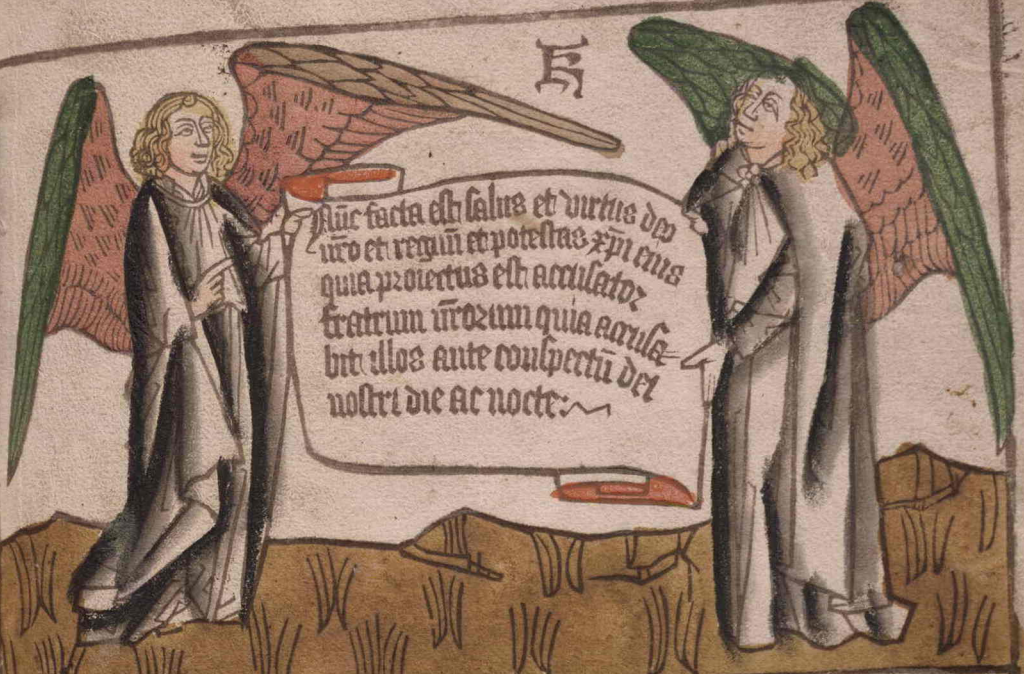 Nūc facta est salus et virtus deo
nr̄o et regnū et potestas xp̄i eius
quia proiectus est accusator
fratrum nr̄orum quia accusa
bit illos ante conspectū dei
nostri die ac nocte: